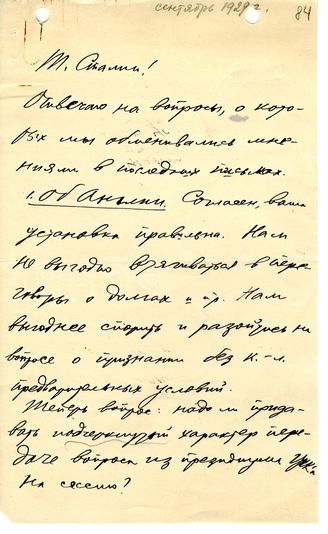 сентябрь 1929 г.
84
Т. Сталин!
Отвечаю на вопросы, о кото-
рых мы обменивались мне-
ниями в последних письмах.
1. Об Англии. Согласен, ваша
установка правильна. Нам
не выгодно втягиваться в пере-
говоры о долгах и пр. Нам
выгоднее спорить и разойтись на
вопросе о признании без к.-л.
предварительных условий.
Теперь вопрос: надо ли прида-
вать подчеркнутый характер пере-
даче вопроса из президиума ЦИК'а
на сессию?